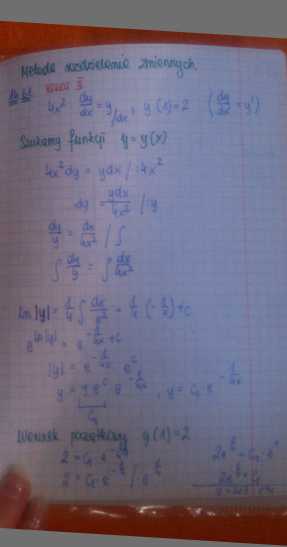 Metoda rozdzielenia zmiennych
4x² dy/dx = y /dx , y(1)=2 (dy/dx = y')
Szukamy funkcji y=y(x)
4x²dy = ydx / :4x²
dy = ydx/4x² / :y
dy/y = dx/4x² / ∫
∫ dy/y = ∫ dx/4x²
ln|y| = 1/4 ∫ dx/x² = 1/4 · (-1/x) + c
e^ln|y| = e^(-1/4x + c)
|y| = e^(-1/4x) · e^c
y = ± e^c · e^(-1/4x) , y = C₁ · e^(-1/4x)
C₁
Warunek początkowy y(1)=2
2 = C₁ · e^(-1/4)